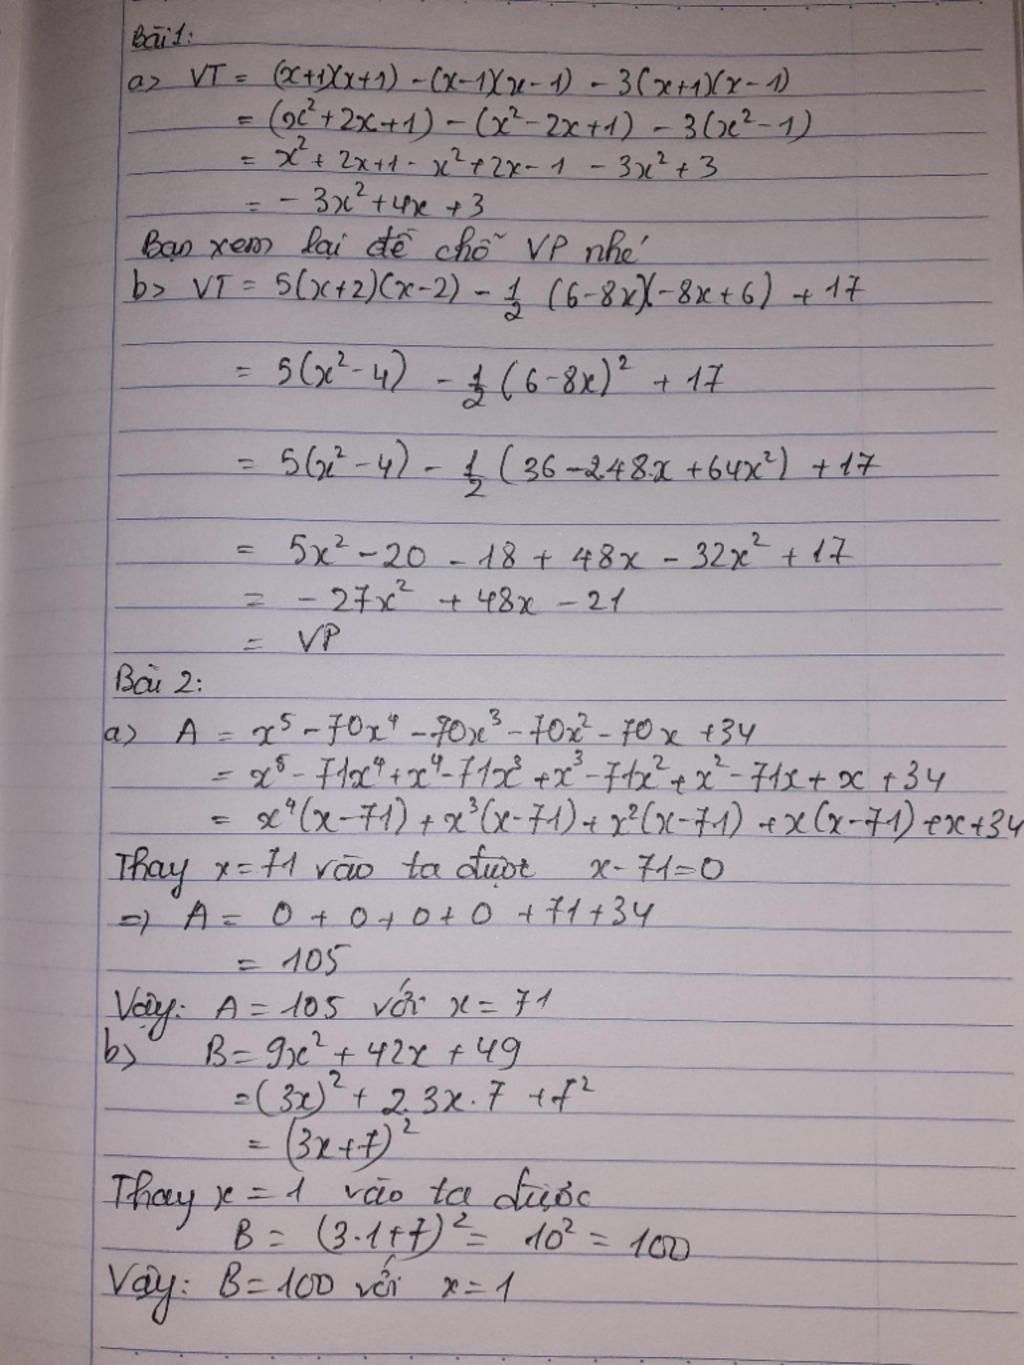 Bài 1:
a> VT = (x+1)(x+1) - (x-1)(x-1) - 3(x+1)(x-1)
= (x²+2x+1) - (x²-2x+1) - 3(x²-1)
= x² + 2x+1 - x²+2x-1 - 3x²+3
= - 3x²+4x +3
Bạn xem lại đề chỗ VP nhé
b> VT = 5(x+2)(x-2) - 1/2 (6-8x)(-8x+6) + 17
= 5(x²-4) - 1/2 (6-8x)² + 17
= 5(x²-4) - 1/2 (36-2.48.x+64x²) + 17
= 5x² - 20 - 18 + 48x - 32x² + 17
= - 27x² + 48x - 21
= VP
Bài 2:
a> A = x⁵ - 70x⁴ - 70x³ - 70x² - 70x + 34
= x⁵ - 71x⁴ + x⁴ - 71x³ + x³ - 71x² + x² - 71x + x + 34
= x⁴(x-71) + x³(x-71) + x²(x-71) + x(x-71) + x+34
Thay x = 71 vào ta được x-71=0
=> A = 0 + 0 + 0 + 0 + 71 + 34
= 105
Vậy: A = 105 với x = 71
b> B = 9x² + 42x + 49
= (3x)² + 2.3x.7 + 7²
= (3x+7)²
Thay x = 1 vào ta được
B = (3.1+7)² = 10² = 100
Vậy: B = 100 với x = 1